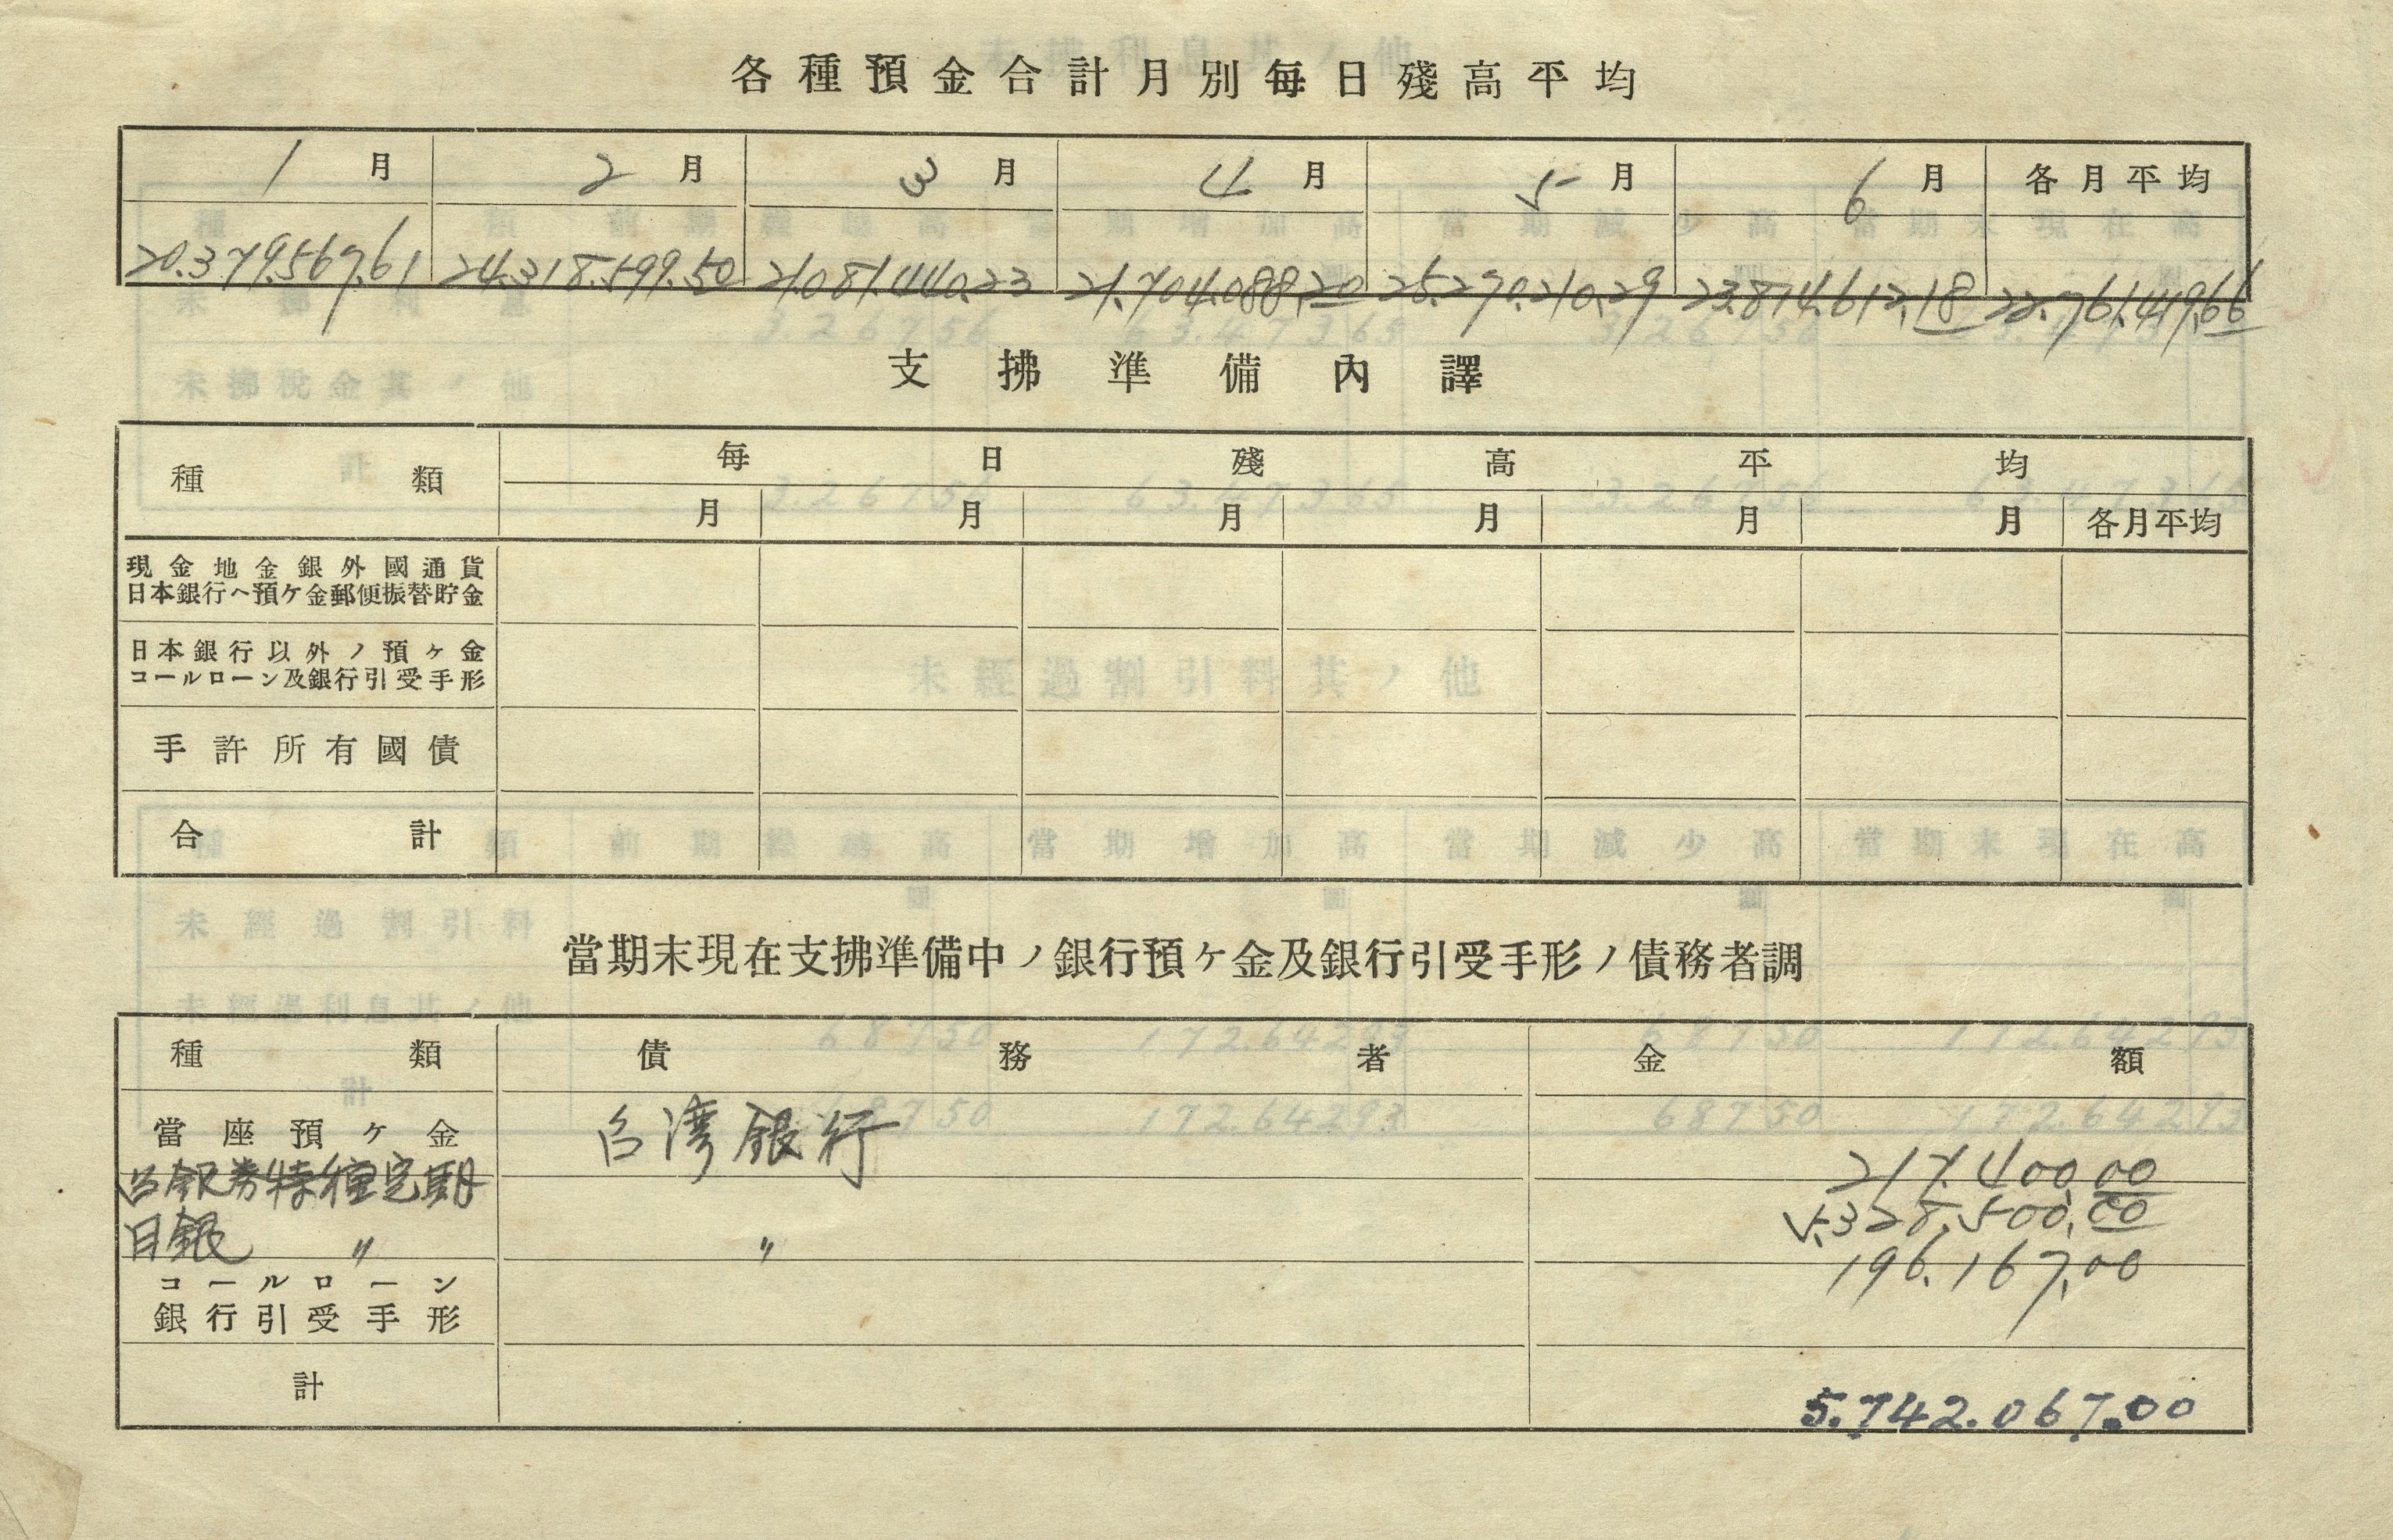 各種預金合計月別每日殘高平均
1月 2月 3月 4月 5月 6月 各月平均
20.379.567.61 24.318.599.50 21.081.440.23 21.704.088.20 25.290.210.29 23.814.612.18 22.761.419.66
支拂準備內譯
種類 每日殘高平均
月 月 月 月 月 月 各月平均
現金地金銀外國通貨
日本銀行ヘ預ケ金郵便振替貯金
日本銀行以外ノ預ヶ金
コールローン及銀行引受手形
手許所有國債
合計
當期末現在支拂準備中ノ銀行預ヶ金及銀行引受手形ノ債務者調
種類 債務者 金額
當座預ヶ金 台湾銀行 217.400.00
台銀券特種定期 5.328.500.00
日銀 〃 〃 196.167.00
コールローン
銀行引受手形
計 5.742.067.00